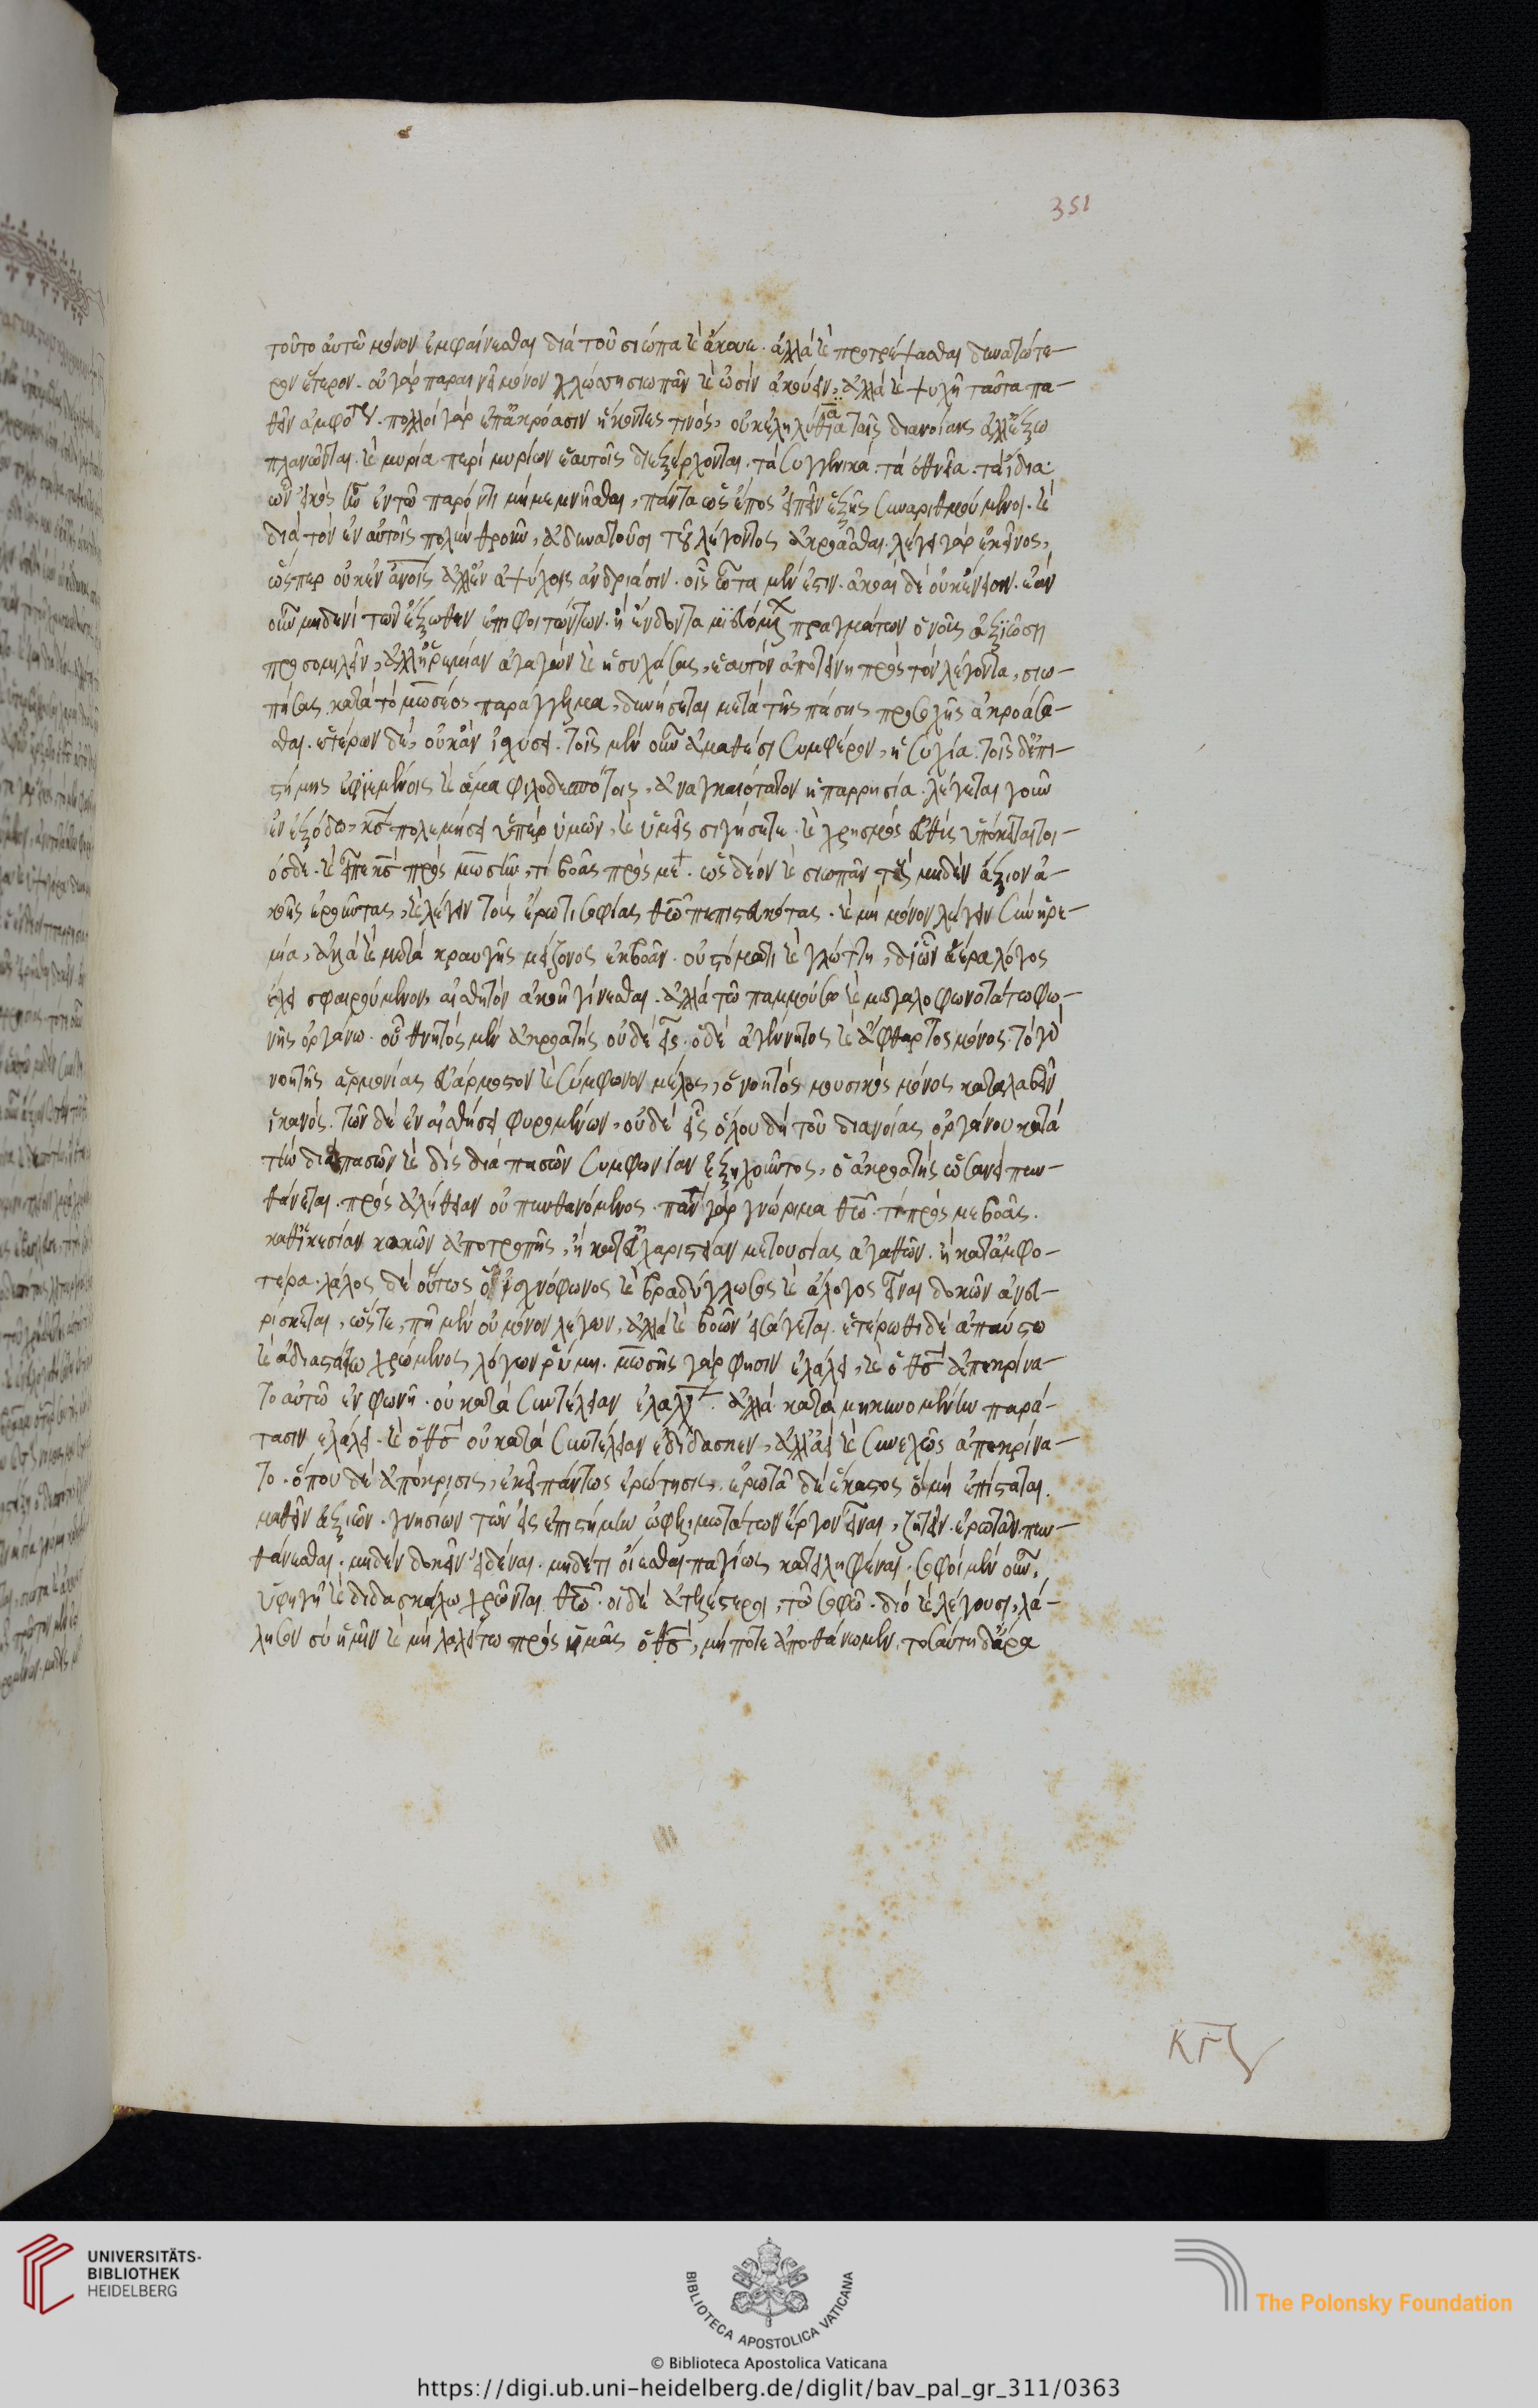 351
τοῦτο αὐτῶ μόνον ἐμφαίνεσθαι διὰ τοῦ σιώπα καὶ ἄκουε. ἀλλὰ καὶ προτρέψασθαι δυνατώτε-
ρον ἕτερον. οὐ γὰρ παραινεῖ μόνον γλώσση σιωπᾶν καὶ ὠσὶν ἀκούειν, ἀλλὰ καὶ ψυχῆ ταῦτα πα-
θεῖν ἀμφοτ. πολλοὶ γὰρ ἐπ' ἀκρόασιν ἥκοντες τινός, οὐκ ἐληλύθασι ταῖς διανοίαις ἀλλ' ἔξω
πλανῶνται. καὶ μυρία περὶ μυρίων ἑαυτοῖς διεξέρχονται. τὰ συγγενικά. τὰ ὀθνεῖα. τὰ ἴδια.
ὧν εἰκὸς ἦν ἐν τῶ παρόντι μὴ μεμνῆσθαι, πάντα ὡς ἔπος εἰπεῖν ἑξῆς συναριθμούμενοι. καὶ
διὰ τὸν ἐν αὐτοῖς πολὺν θροῦν, ἀδυνατοῦσι τοῦ λέγοντος ἀκροᾶσθαι. λέγει γὰρ ἐκεῖνος,
ὥσπερ οὐκ ἐν ἀνοις ἀλλ' ἐν ἀψύχοις ἀνδριάσιν. οἷς ὦτα μέν ἐστιν. ἀκοαὶ δὲ οὐκ ἔνεισιν. ἐὰν
οὖν μηδενὶ τῶν ἔξωθεν ἐπιφοιτώντων. ἢ ἔνδον ταμιευομένων πραγμάτων ὁ νοῦς ἀξιώση
προσομιλεῖν, ἀλλ' ἠρεμίαν ἀγαγὼν καὶ ἡσυχάσας, ἑαυτὸν ἀποτείνη πρὸς τὸν λέγοντα, σιω-
πήσας κατὰ τὸ μωσέος παράγγελμα, δυνήσεται μετὰ τῆς πάσης προσοχῆς ἀκροάσα-
σθαι. ἑτέρων δέ, οὐκ ἂν ἰσχύσει. τοῖς μὲν οὖν ἀμαθέσι συμφέρον, ἡσυχία. τοῖς δ' ἐπι-
στήμης ἐφιεμένοις καὶ ἅμα φιλοδεσπότοις, ἀναγκαιότατον ἡ παρρησία. λέγεται γοῦν
ἐν ἐξόδω, κς πολεμήσει ὑπὲρ ὑμῶν, καὶ ὑμεῖς σιγήσετε. καὶ χρησμὸς εὐθὺς ὑπόκειται τοι-
όσδε. καὶ εἶπε κς πρὸς μωσῆν, τί βοᾶς πρὸς μέ. ὡς δέον καὶ σιωπᾶν τοὺς μηδὲν ἄξιον ἀ-
κοῆς ἐροῦντας, καὶ λέγειν τοὺς ἔρωτι σοφίας θείω πεπιστευκότας. καὶ μὴ μόνον λέγειν σὺν ἠρε-
μία, ἀλλὰ καὶ μετὰ κραυγῆς μείζονος ἐκβοᾶν. οὐ στόματι καὶ γλώττη, δι' ὧν ἀέρα λόγος
ἔχει σφαιρούμενον, αἰσθητὸν ἀκοῆ γίνεσθαι. ἀλλὰ τῶ παμμούσω καὶ μεγαλοφωνοτάτω φω-
νῆς ὀργάνω. οὗ θνητὸς μὲν ἀκροατὴς οὐδὲ εἷς. ὁ δὲ ἀγέννητος καὶ ἄφθαρτος μόνος. τὸ γὰρ
νοητῆς ἁρμονίας εὐάρμοστον καὶ σύμφωνον μέλος, ὁ νοητὸς μουσικὸς μόνος καταλαβεῖν
ἱκανός. τῶν δὲ ἐν αἰσθήσει φυρομένων, οὐδὲ εἷς. ὅλου δὴ τοῦ διανοίας ὀργάνου κατὰ
τὴν διὰ πασῶν καὶ δὶς διὰ πασῶν συμφωνίαν ἐξηχοῦντος, ὁ ἀκροατὴς ὡσανεὶ πυν-
θάνεται. πρὸς ἀλήθειαν οὐ πυνθανόμενος. πάντα γὰρ γνώριμα θεῶ. τί πρὸς με βοᾶς.
καθ' ἱκεσίαν κακῶν ἀποτροπῆς, ἢ κατ' εὐχαριστείαν μετουσίας ἀγαθῶν. ἢ κατ' ἀμφο-
τέρα. λάλος δὲ οὕτως ὁ ἰσχνόφωνος καὶ βραδύγλωσσος καὶ ἄλογος εἶναι δοκῶν ἀνευ-
ρίσκεται, ὥστε, πῆ μὲν οὐ μόνον λέγων, ἀλλὰ καὶ βοῶν εἰσάγεται. ἑτέρωθι δὲ ἀπαύστω
καὶ ἀδιαστάτω χρώμενος λόγων ῥύμη. μωσῆς γάρ φησιν ἐλάλει, καὶ ὁ θς ἀπεκρίνα-
το αὐτῶ ἐν φωνῆ. οὐ κατὰ συντέλειαν ἐλαλ. ἀλλὰ κατὰ μηκυνομένην παρά-
τασιν ἐλάλει. καὶ ὁ θς οὐ κατὰ συντέλειαν ἐδίδασκεν, ἀλλ' ἀεὶ καὶ συνεχῶς ἀπεκρίνα-
το. ὅπου δὲ ἀπόκρισις, ἐκεῖ πάντως ἐρώτησις. ἐρωτᾶ δὲ ἕκαστος ὃ μὴ ἐπίσταται.
μαθεῖν ἀξιῶν. γνησίων τῶν εἰς ἐπιστήμην ὠφελιμωτάτων ἔργον εἶναι, ζητεῖν. ἐρωτᾶν. πυν-
θάνεσθαι. μηδὲν δοκεῖν εἰδέναι. μηδέ τι οἴεσθαι παγίως κατειληφέναι. σοφοὶ μὲν οὖν,
ὑφηγητῆ καὶ διδασκάλω χρῶνται θεῶ. οἱ δὲ ἀτελέστεροι, τῶ σοφῶ. διὸ καὶ λέγουσι, λά-
λησον σὺ ἡμῖν καὶ μὴ λαλείτω πρὸς ἡμᾶς ὁ θς, μήποτε ἀποθάνωμεν. τοσαύτη δ' ἄρα
© Biblioteca Apostolica Vaticana
UNIVERSITÄTS-
BIBLIOTHEK
HEIDELBERG
BIBLIOTECA APOSTOLICA VATICANA
The Polonsky Foundation
https://digi.ub.uni-heidelberg.de/diglit/bav_pal_gr_311/0363